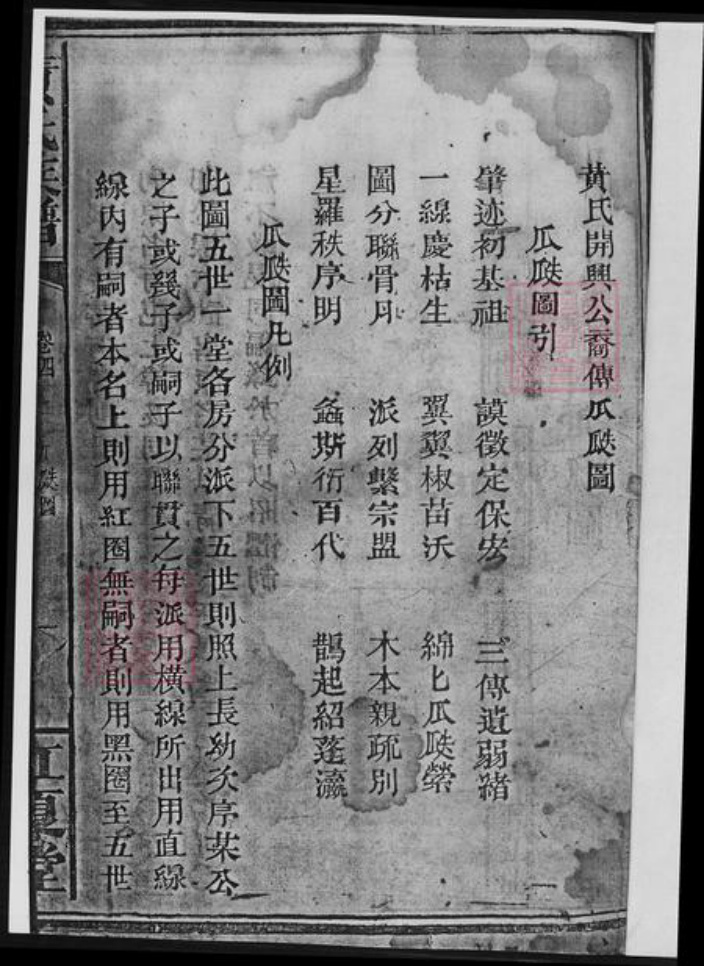 黄氏開興公裔傳瓜瓞圖
瓜瓞圖引
肇迹初基祖 謨徵定保宏 三傳遺弱緒
一線慶枯生 翼翼椒苗沃 綿匕瓜瓞縈
圖分聯骨月 派列繫宗盟 木本親疏别
星羅秩序明 螽斯衍百代 鵲起紹蓬瀛
瓜瓞圖凡例
此圖五世一堂各房分派下五世則照上長幼次序某公
之子或幾子或嗣子以聯貫之每派用横線所出用直線
線内有嗣者本名上則用紅圈無嗣者則用黑圈至五世
氏族譜
卷四
瓜瓞圖
一
江夏堂